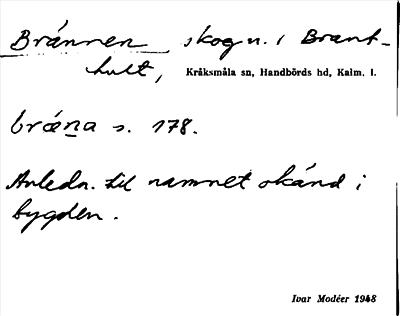 Brännen, skog n. i Brant-
hult, Kråksmåla sn, Handbörds hd, Kalm. l.
bræṉa s. 178.
Anledn. till namnet okänd i
bygden.
Ivar Modéer 1948